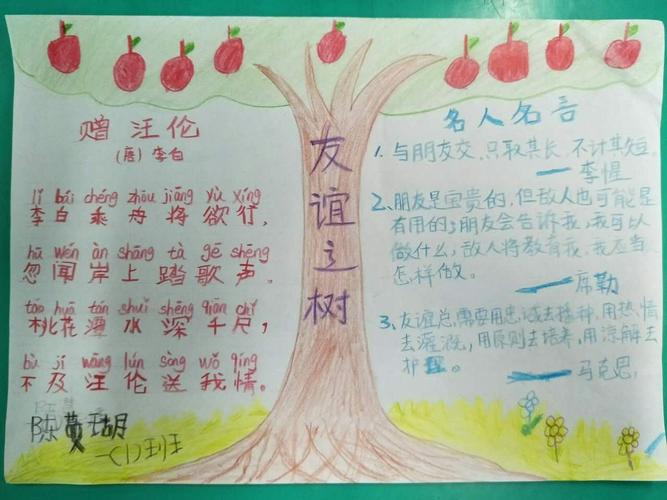 赠汪伦
(唐)李白
lǐ bái chéng zhōu jiāng yù xíng
李白乘舟将欲行,
hū wén àn shàng tà gē shēng
忽闻岸上踏歌声。
táo huā tán shuǐ shēng qiān chǐ
桃花潭水深千尺,
bù jí wāng lún sòng wǒ qíng
不及汪伦送我情。
陈黄瑚
一(1)班
友谊之树
名人名言
1、与朋友交,只取其长,不计其短。
——李惺
2、朋友是宝贵的,但敌人也可能是
有用的;朋友会告诉我,我可以
做什么,敌人将教育我,我应当
怎样做。
——席勒
3、友谊总需要用忠诚去播种,用热情
去灌溉,用原则去培养,用谅解去
护理。
——马克思。